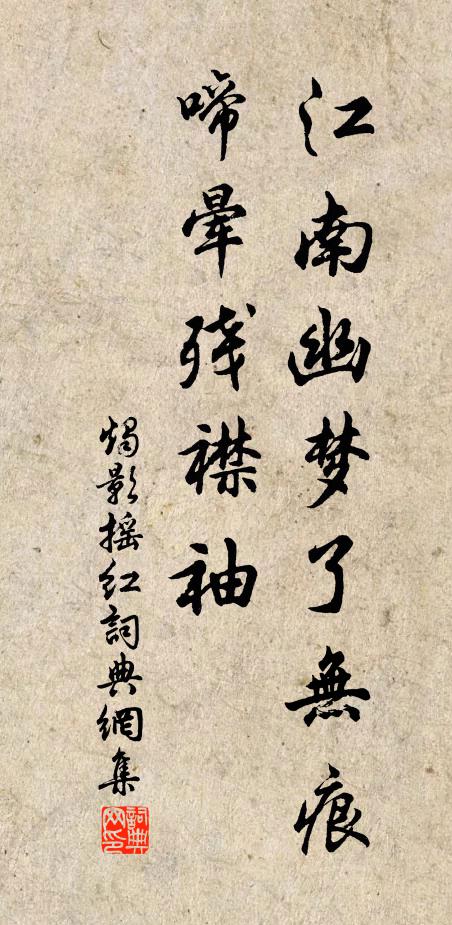 江南幽梦了無痕
啼暈残襟袖
燭影摇红詞典網集
詞典网印